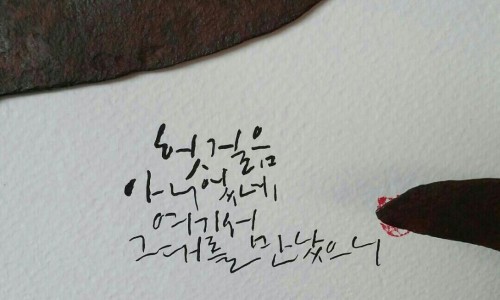 헛걸음
아니었네
여기서
그대를 만났으니